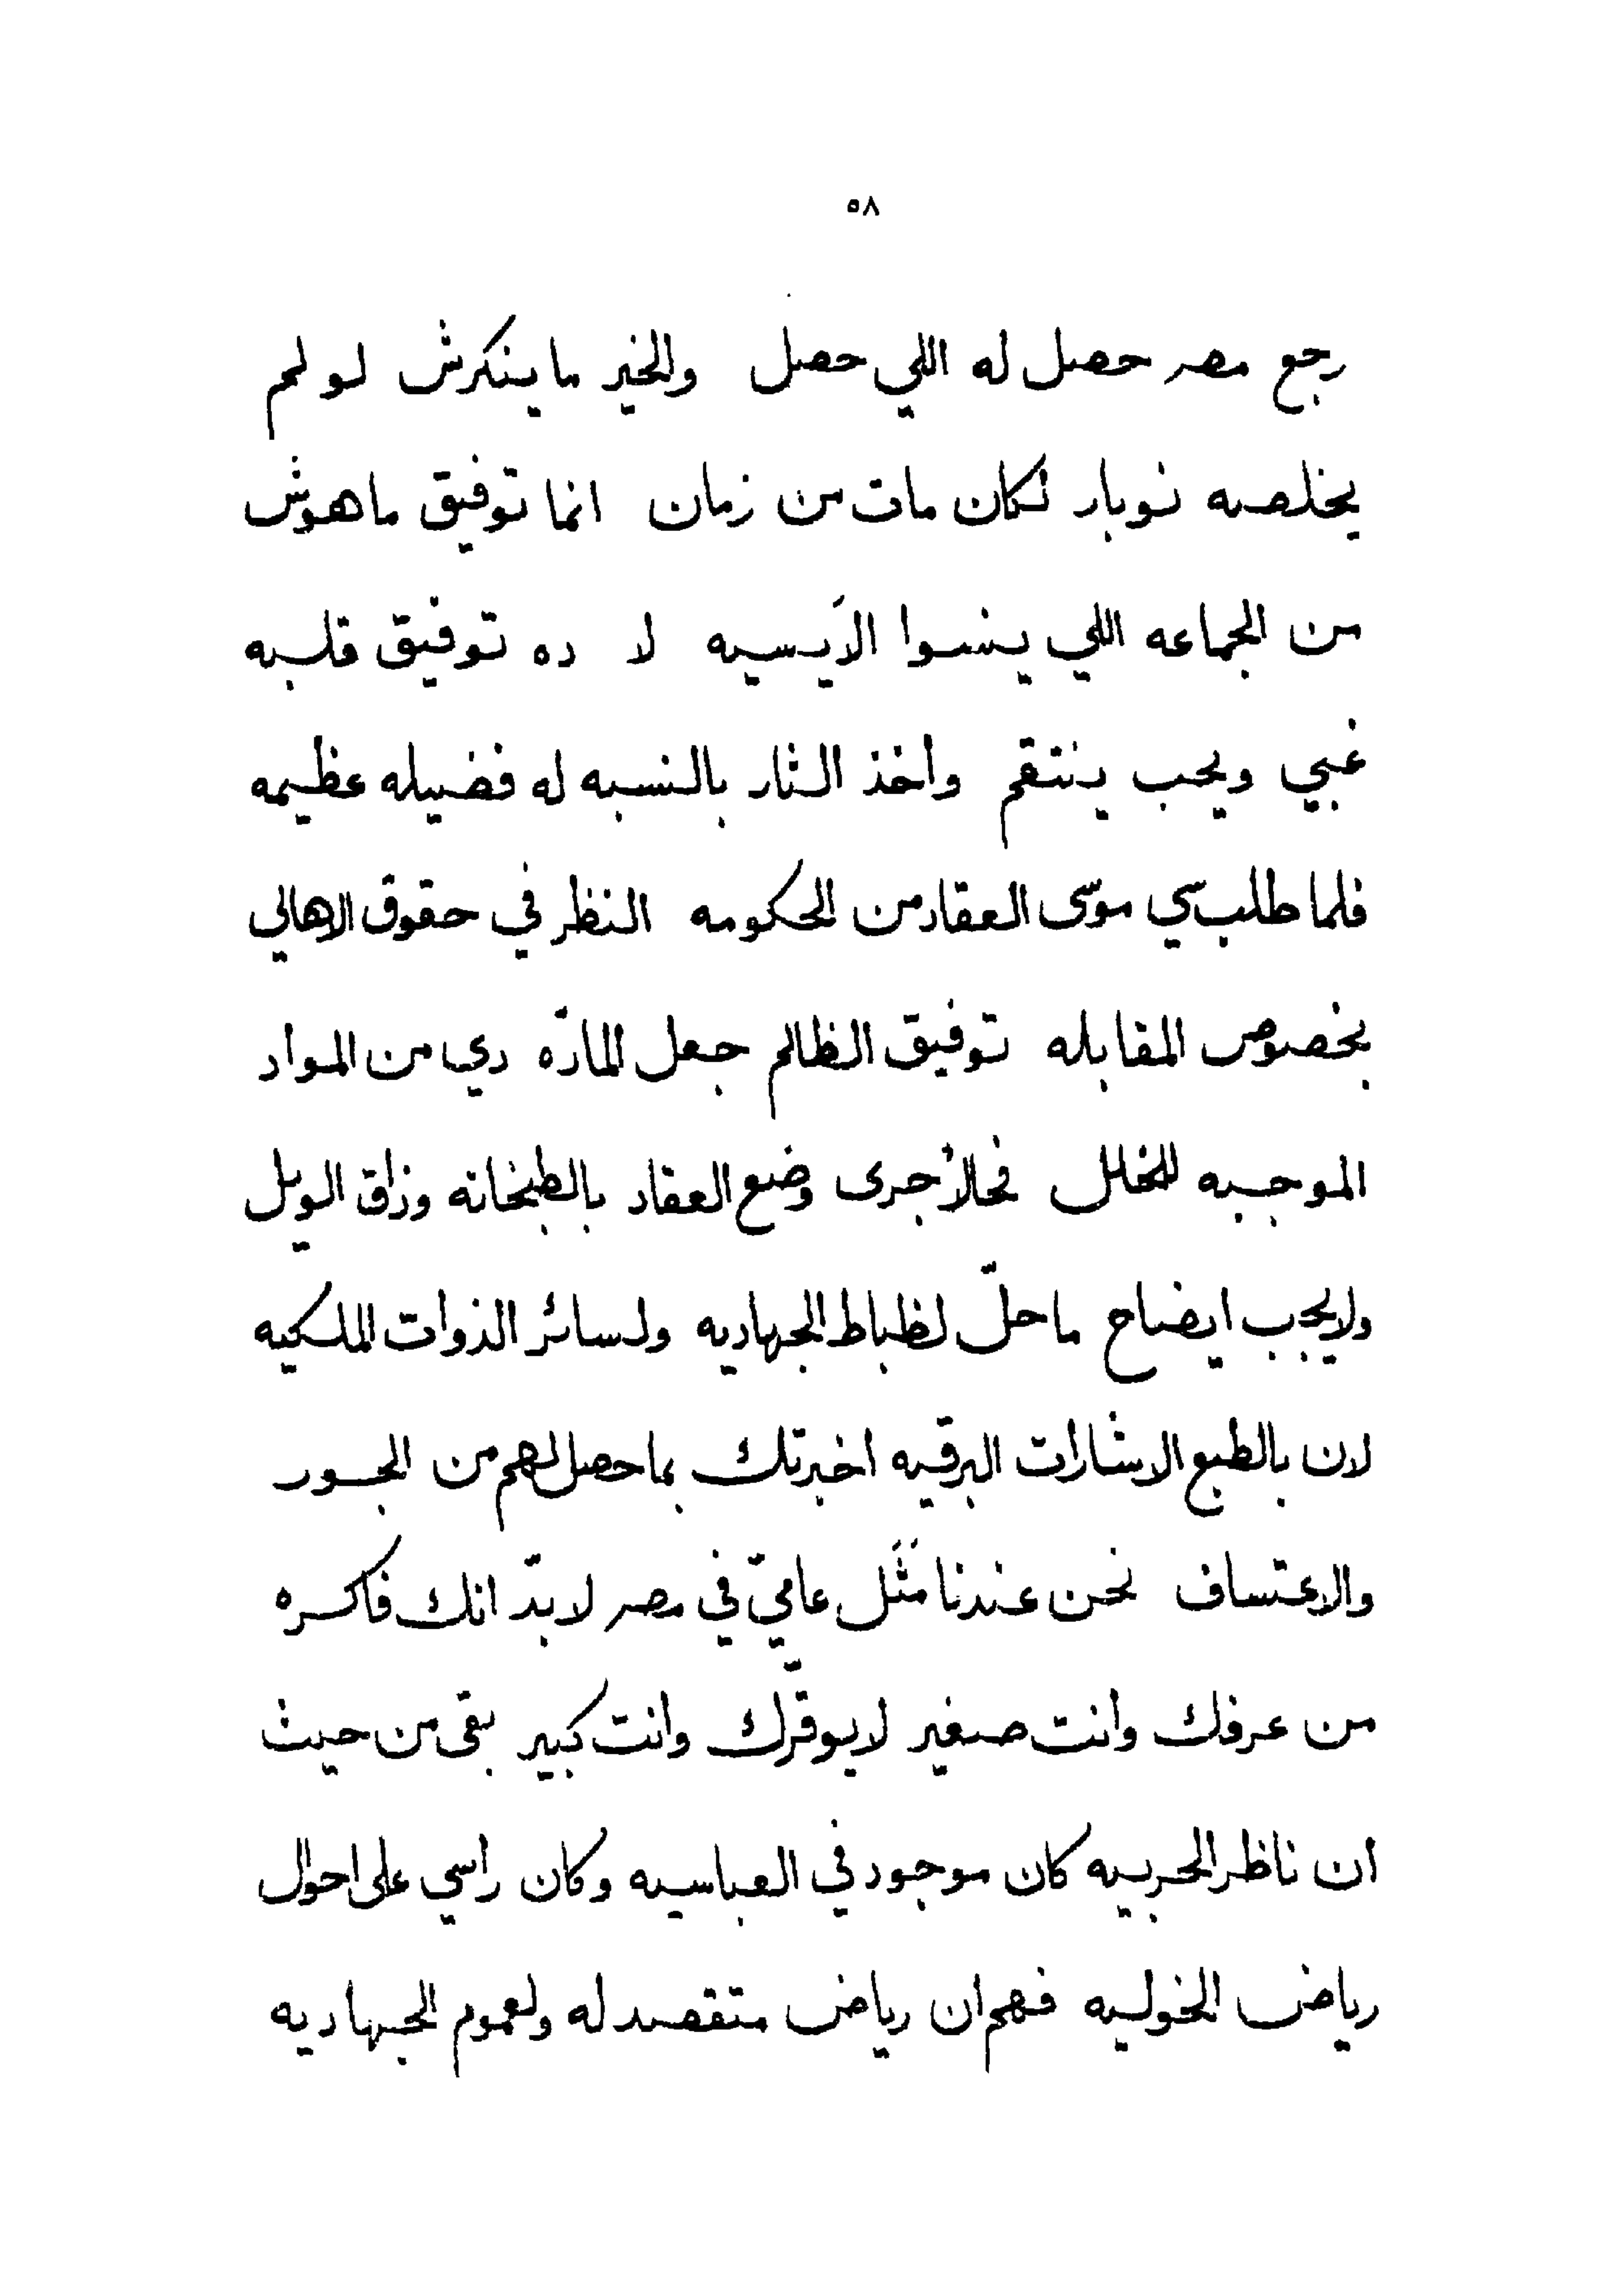 ٥٨
رجع مصر حصل له اللي حصل والخير ما ينكرش لو لم
يخلصه نوبار لكان مات من زمان انما توفيق ماهوش
من الجماعه اللي ينسوا الاَيسيه لا ده توفيق قلبه
غبي ويحب ينتقم واخذ الثار بالنسبه له فضيله عظيمه
فلما طلب سي موسى العقاد من الحكومه النظر في حقوق الاهالي
بخصوص المقابله توفيق الظالم جعل المادّه دي من المواد
الموجبه للخلل فحالاً جرى وضع العقاد بالطبخانه وذاق الويل
ولا يجب ايضاح ما حلّ لظباط الجهاديه ولسائر الذوات الملكيه
لان بالطبع الاشارات البرقيه اخبرتك بما حصل لهم من الجور
والاعتساف نحن عندنا مَثَل عاميّ في مصر لا بدّ انك فاكره
من عرفك وانت صغير لا يوقّرك وانت كبير بقى من حيث
ان ناظر الحربيه كان موجود في العباسيه وكان راسي على احوال
رياض الخوليه فهم ان رياض متقصد له ولعموم الجهاديه